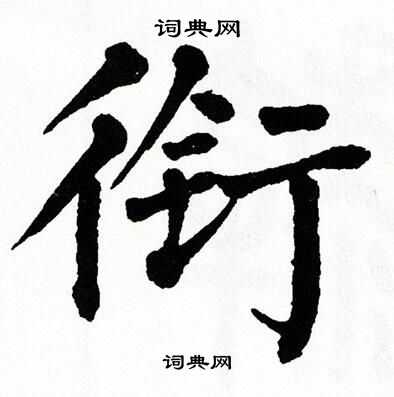 词典网
銜
词典网